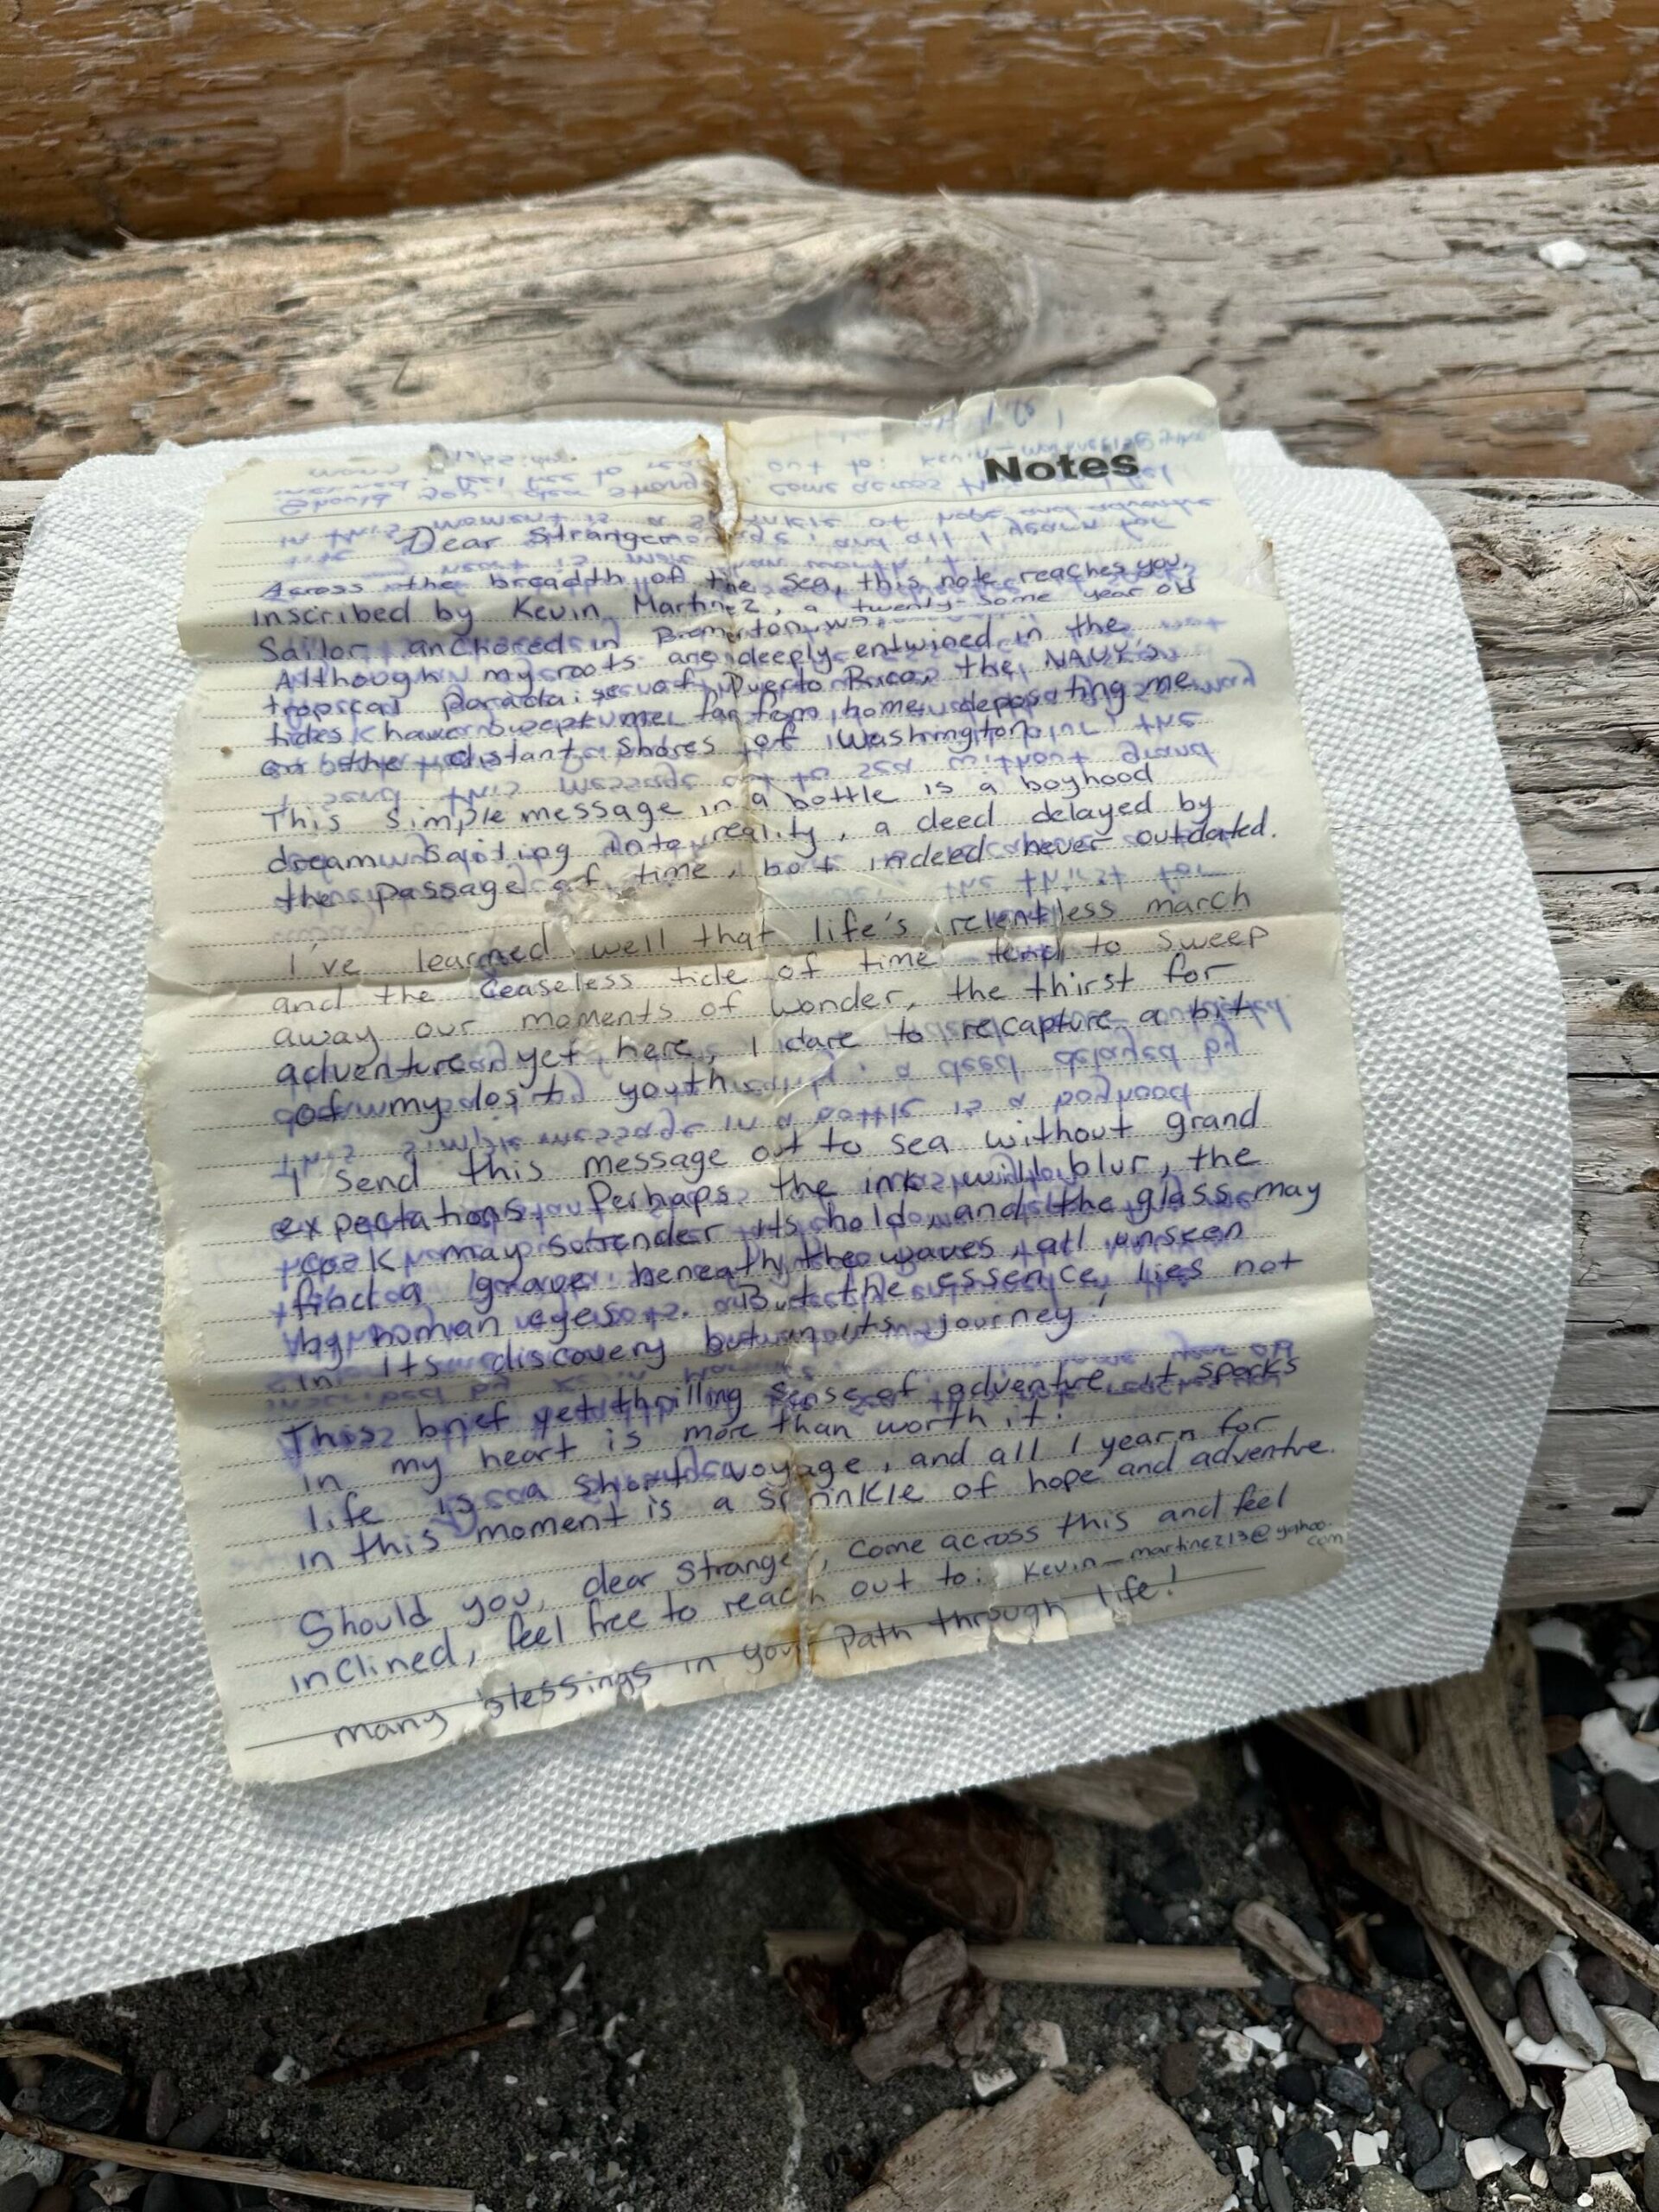 Notes
Dear Stranger
Across the breadth of the sea, this note reaches you,
inscribed by Kevin Martinez, a twenty-some year old
Sailor anchored in Bremerton, WA.
Although my roots are deeply entwined in the
tropical paradaise of Puerto Rico, the NAVY's
tides have swept me far from home, deposating me
on the distant shores of Washington.
This simple message in a bottle is a boyhood
dream sailing into reality, a deed delayed by
the passage of time, but indeed never outdated.
I've learned well that life's relentless march
and the ceaseless tide of time tend to sweep
away our moments of wonder, the thirst for
adventure, yet here, I dare to recapture a bit
of my lost youth.
I send this message out to sea without grand
expectations. Perhaps the ink will blur, the
cork may surrender its hold, and the glass may
find a grave beneath the waves, all unseen
by human eyes. But the essence lies not
in its discovery but in its journey!
This brief yet thrilling sense of adventure it sparks
in my heart is more than worth it.
life is a short voyage, and all I yearn for
in this moment is a sprinkle of hope and adventure.
Should you, dear stranger, come across this and feel
inclined, feel free to reach out to: Kevin_martinez13@yahoo.
com
many blessings in your Path through life!